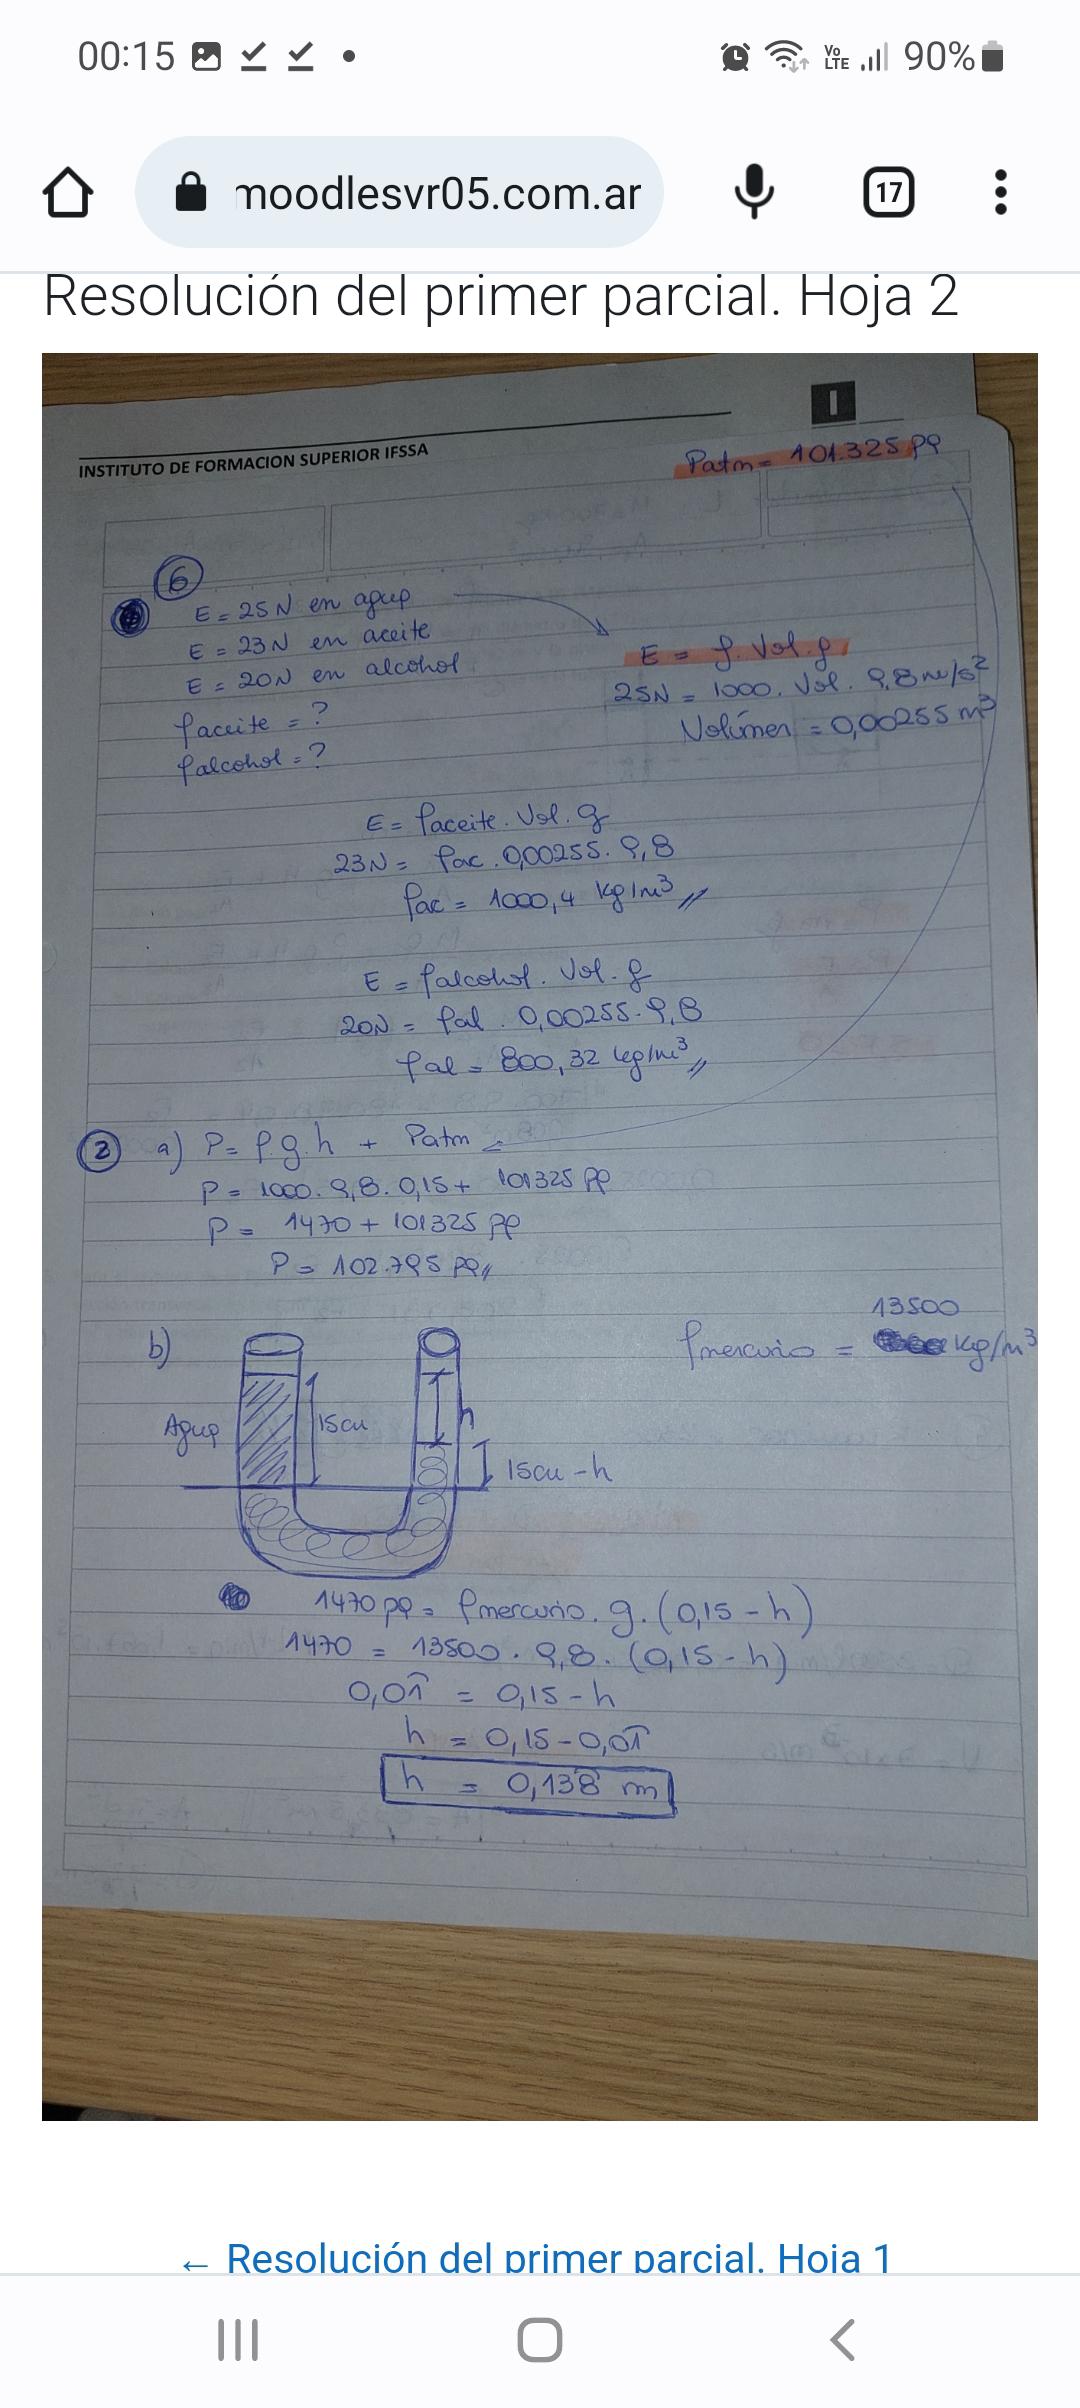 00:15
Vo LTE 90%
moodlesvr05.com.ar
17
Resolución del primer parcial. Hoja 2
I
INSTITUTO DE FORMACION SUPERIOR IFSSA
Patm = 101.325 Pa
6
E = 25N en agua
E = 23N en aceite
E = 20N en alcohol
ρaceite = ?
ρalcohol = ?
E = ρ. Vol. g
25N = 1000. Vol. 9,8 m/s²
Volúmen = 0,00255 m³
E = ρaceite. Vol. g
23N = ρac. 0,00255. 9,8
ρac = 1000,4 kg/m³
E = ρalcohol. Vol. g
20N = ρal. 0,00255. 9,8
ρal = 800,32 kg/m³
2 a) P = ρ.g.h + Patm
P = 1000. 9,8. 0,15 + 101325 Pa
P = 1470 + 101325 Pa
P = 102.795 Pa
b)
13500
ρmercurio = kg/m³
Agua
15cm
h
15cm - h
1470 Pa = ρmercurio. g. (0,15 - h)
1470 = 13500. 9,8. (0,15 - h)
0,01 = 0,15 - h
h = 0,15 - 0,01
h = 0,138 m
← Resolución del primer parcial. Hoja 1